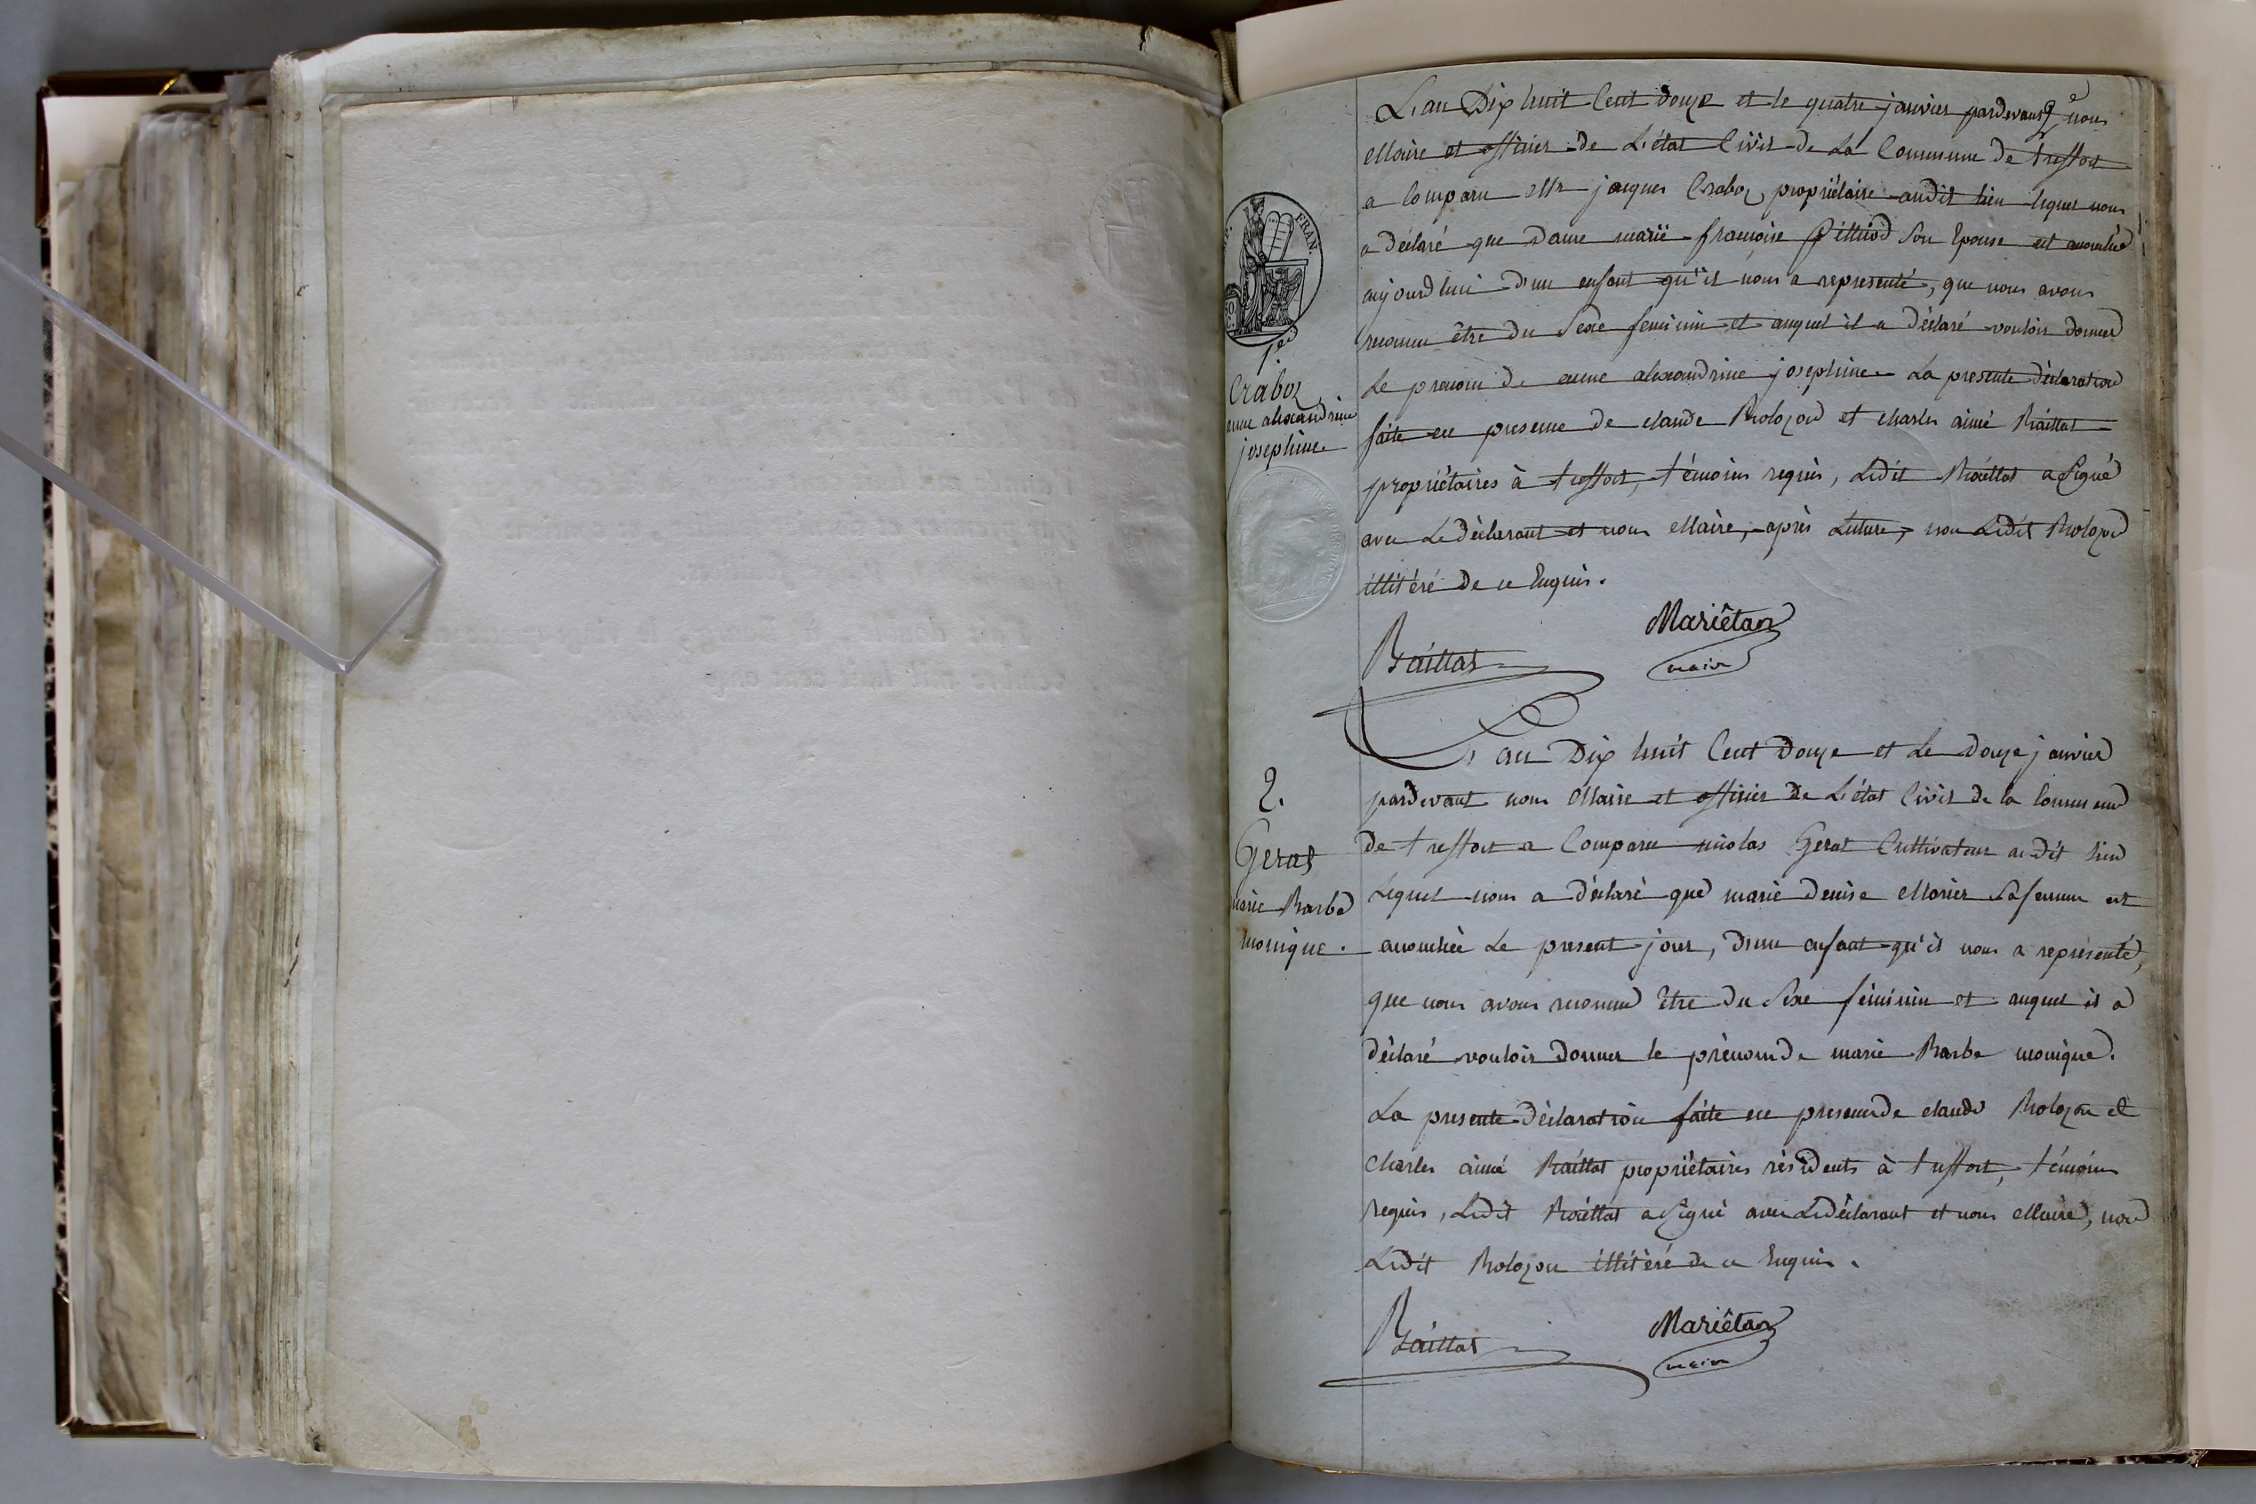 FRAN.
1er
Craboz
anne alexandrine
josephine
L'an Dix huit Cent douze et le quatre janvier pardevant nous
Maire et officier de L'état Civil de La Commune de treffort
a Comparu Mr jacques Craboz propriétaire audit lieu lequel nous
a déclaré que dame marie françoise Pilliod Son Epouse est accouchée
aujourdhui d'un enfant qu'il nous a representé, que nous avons
reconnu être du Sexe feminin et auquel il a déclaré vouloir donner
Le prenom de anne alexandrine josephine. La presente déclaration
faite en presence de claude Bolozon et charles aimé Baillat
propriétaires à treffort, témoins requis, Ledit Baillat a Signé
avec Le déclarant et nous Maire, après Lecture, non Ledit Bolozon
illitéré de ce Enquis.
Baillat
Mariêtan
maire
2.
Geras
marie Barbe
monique.
L'an Dix huit Cent Douze et Le Douze janvier
pardevant nous Maire et officier De L'état Civil de la Commune
de treffort a Comparu nicolas Geras Cultivateur audit lieu
Lequel nous a déclaré que marie denise Morier Sa femme est
accouchée Le present jour, d'un enfant qu'il nous a représenté,
que nous avons reconnu Etre du Sexe féminin et auquel il a
déclaré vouloir donner le prénom de marie Barbe monique.
La presente déclaration faite en presence de claude Bolozon et
Charles aimé Baillat propriétaires résidents à treffort, témoins
requis, Ledit Baillat a Signé avec Le déclarant et nous Maire, non
Ledit Bolozon illitéré de ce Enquis.
Baillat
Mariêtan
maire